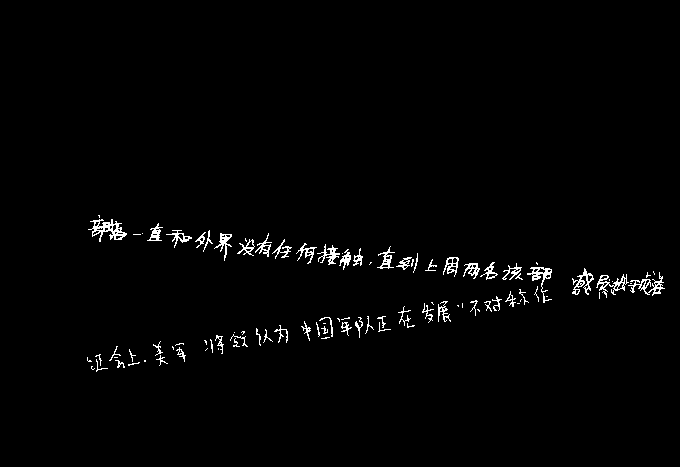 部落一直和外界没有任何接触,直到上周两名该部
证会上,美军将领认为中国军队正在发展"不对称作